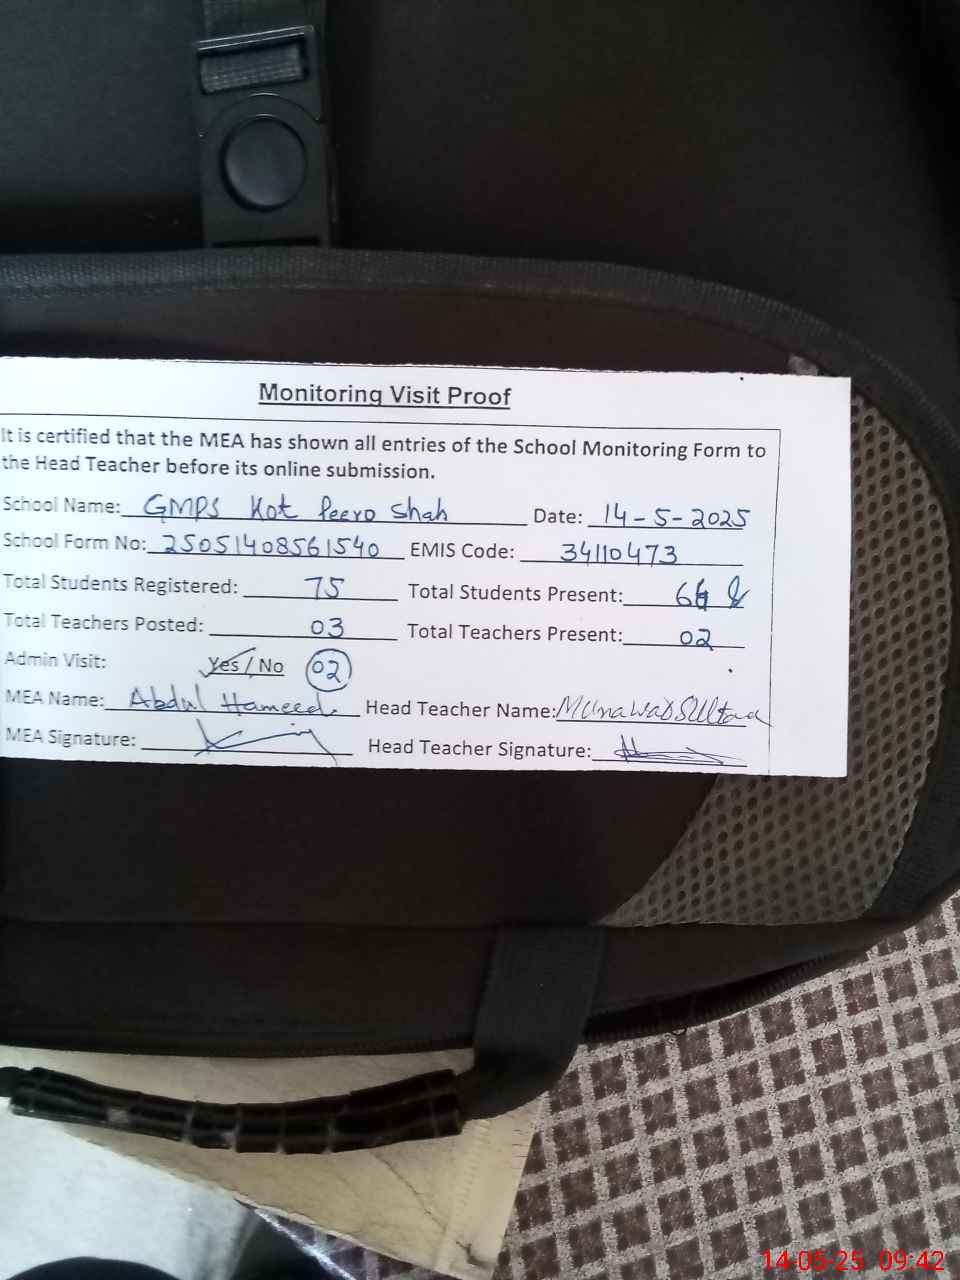 Monitoring Visit Proof
It is certified that the MEA has shown all entries of the School Monitoring Form to
the Head Teacher before its online submission.
School Name: GMPS Kot Peero Shah Date: 14-5-2025
School Form No: 25051408561540 EMIS Code: 34110473
Total Students Registered: 75 Total Students Present:
Total Teachers Posted: 03 Total Teachers Present: 02
Admin Visit: Yes / No 02
MEA Name: Abdul Hameed Head Teacher Name: Munawar Sultana
MEA Signature: Head Teacher Signature:
14-05-25 09:42